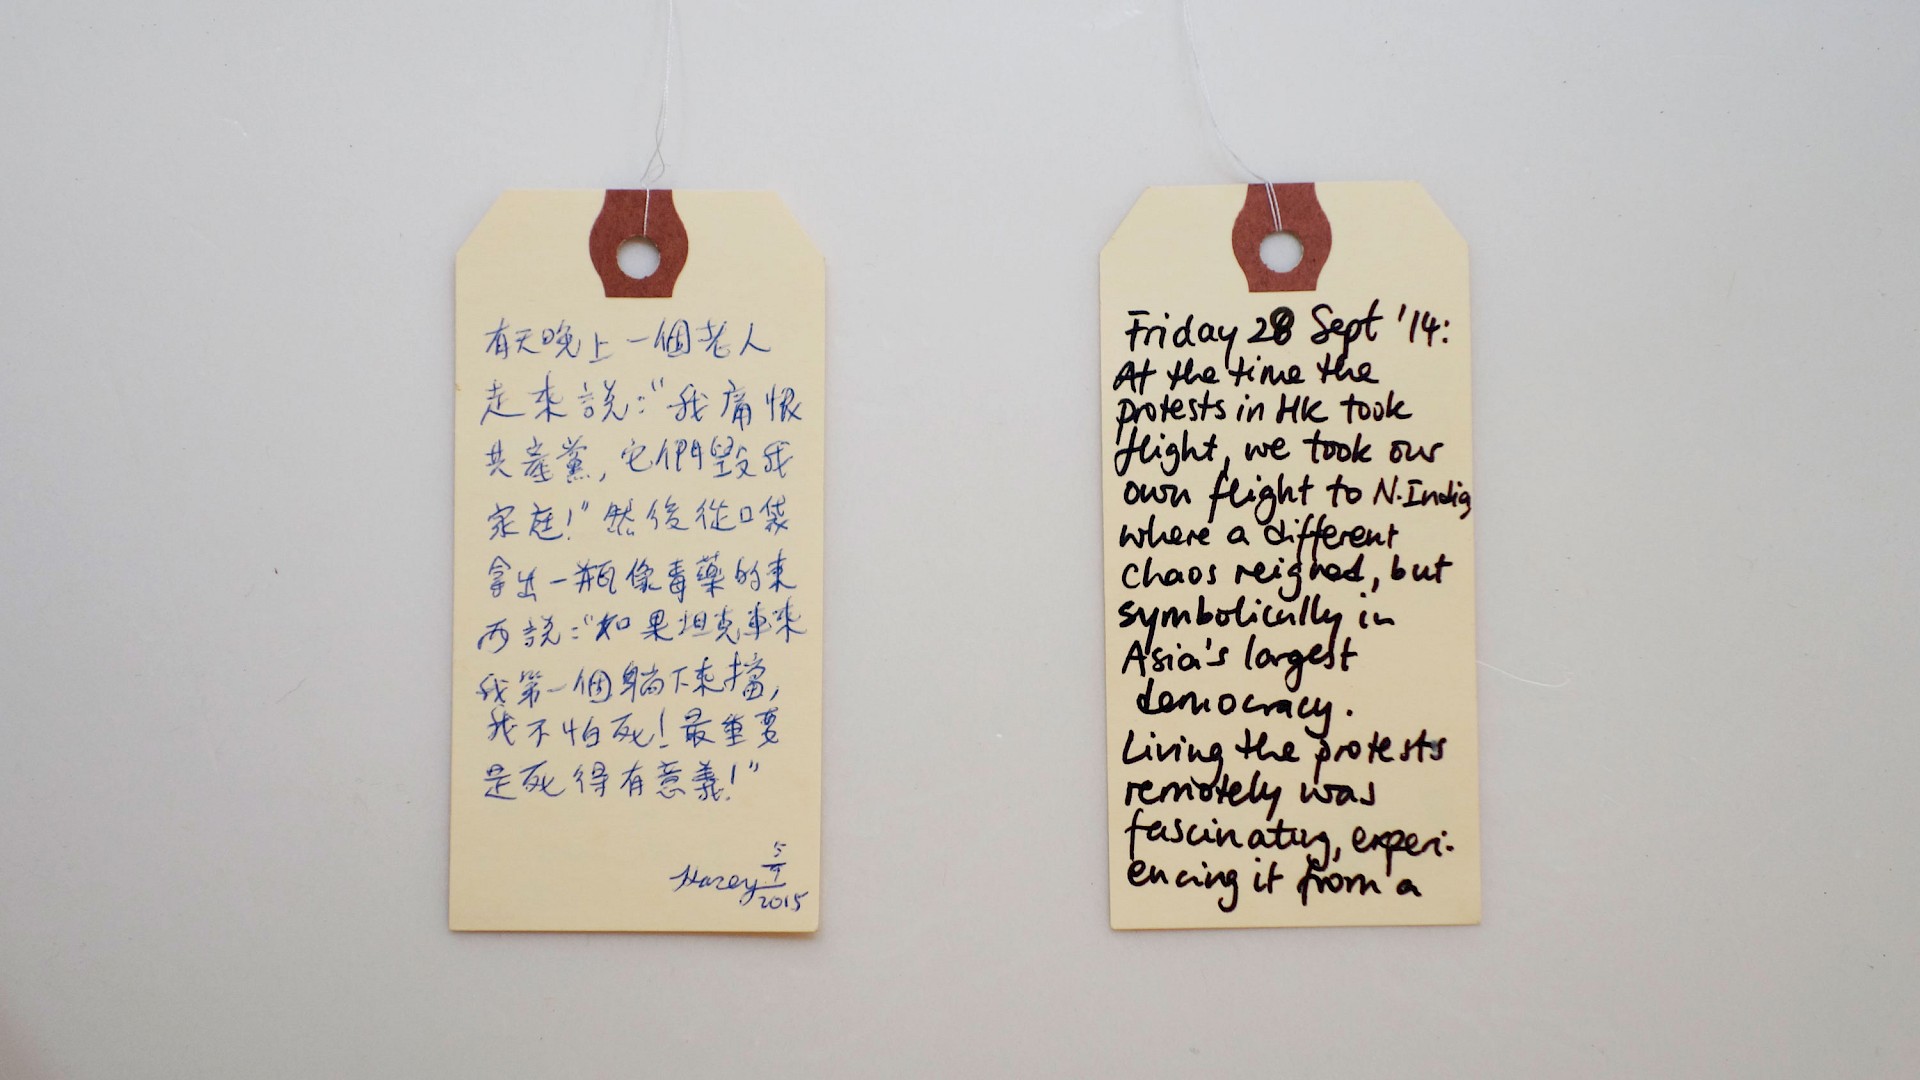 有天晚上一個老人
走來說：“我痛恨
共產黨，它們毀我
家庭！”然後從口袋
拿出一瓶像毒藥的東
西說：“如果坦克車來
我第一個躺下來擋，
我不怕死！最重要
是死得有意義！”
5
2015
Friday 28 Sept '14:
At the time the
protests in HK took
flight, we took our
own flight to N.India
where a different
chaos reigned, but
symbolically in
Asia's largest
democracy.
Living the protests
remotely was
fascinating, experi-
encing it from a